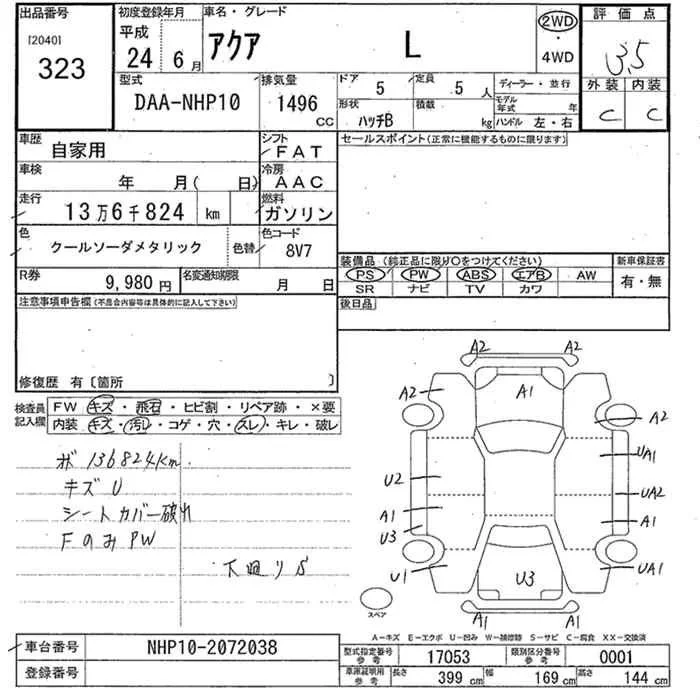 出品番号 初度登録年月 車名・グレード 評価点
[2040] 平成 アクア L 2WD 3.5
323 24 6月 4WD
外装 内装
型式 排気量 ドア 5 定員 5人 ディーラー・並行 C C
DAA-NHP10 1496 CC 形状 ハッチB 積載 kg モデル年式 年
ハンドル 左・右
車歴 自家用 シフト FAT セールスポイント(正常に機能するものに限ります)
車検 年 月( 日) 冷房 AAC
走行 13万6千824 km 燃料 ガソリン
色 クールソーダメタリック 色替 色コード 8V7
装備品(純正品に限り〇をつけてください) 新車保証書
R券 9,980円 名変通知期限 月 日 PS PW ABS エアB AW 有・無
SR ナビ TV カワ
注意事項申告欄(不具合内容等は具体的に記入して下さい) 後日品
修復歴 有〔箇所 〕
検査員記入欄 FW キズ・飛石・ヒビ割・リペア跡・×要
内装 キズ・汚レ・コゲ・穴・スレ・キレ・破レ
ボ 136824km
キズU
シートカバー破れ
FのみPW
下廻りS
A2 A2
A2 A1 A2
UA1
U2 UA2
A1 A1
U3
U1 U3 UA1
A1 A1
スペア
A-キズ E-エクボ U-凹み W-補修跡 S-サビ C-腐食 XX-交換済
車台番号 NHP10-2072038 型式指定番号参考 17053 類別区分番号参考 0001
登録番号 車庫証明用参考 長さ 399cm 幅 169cm 高さ 144cm